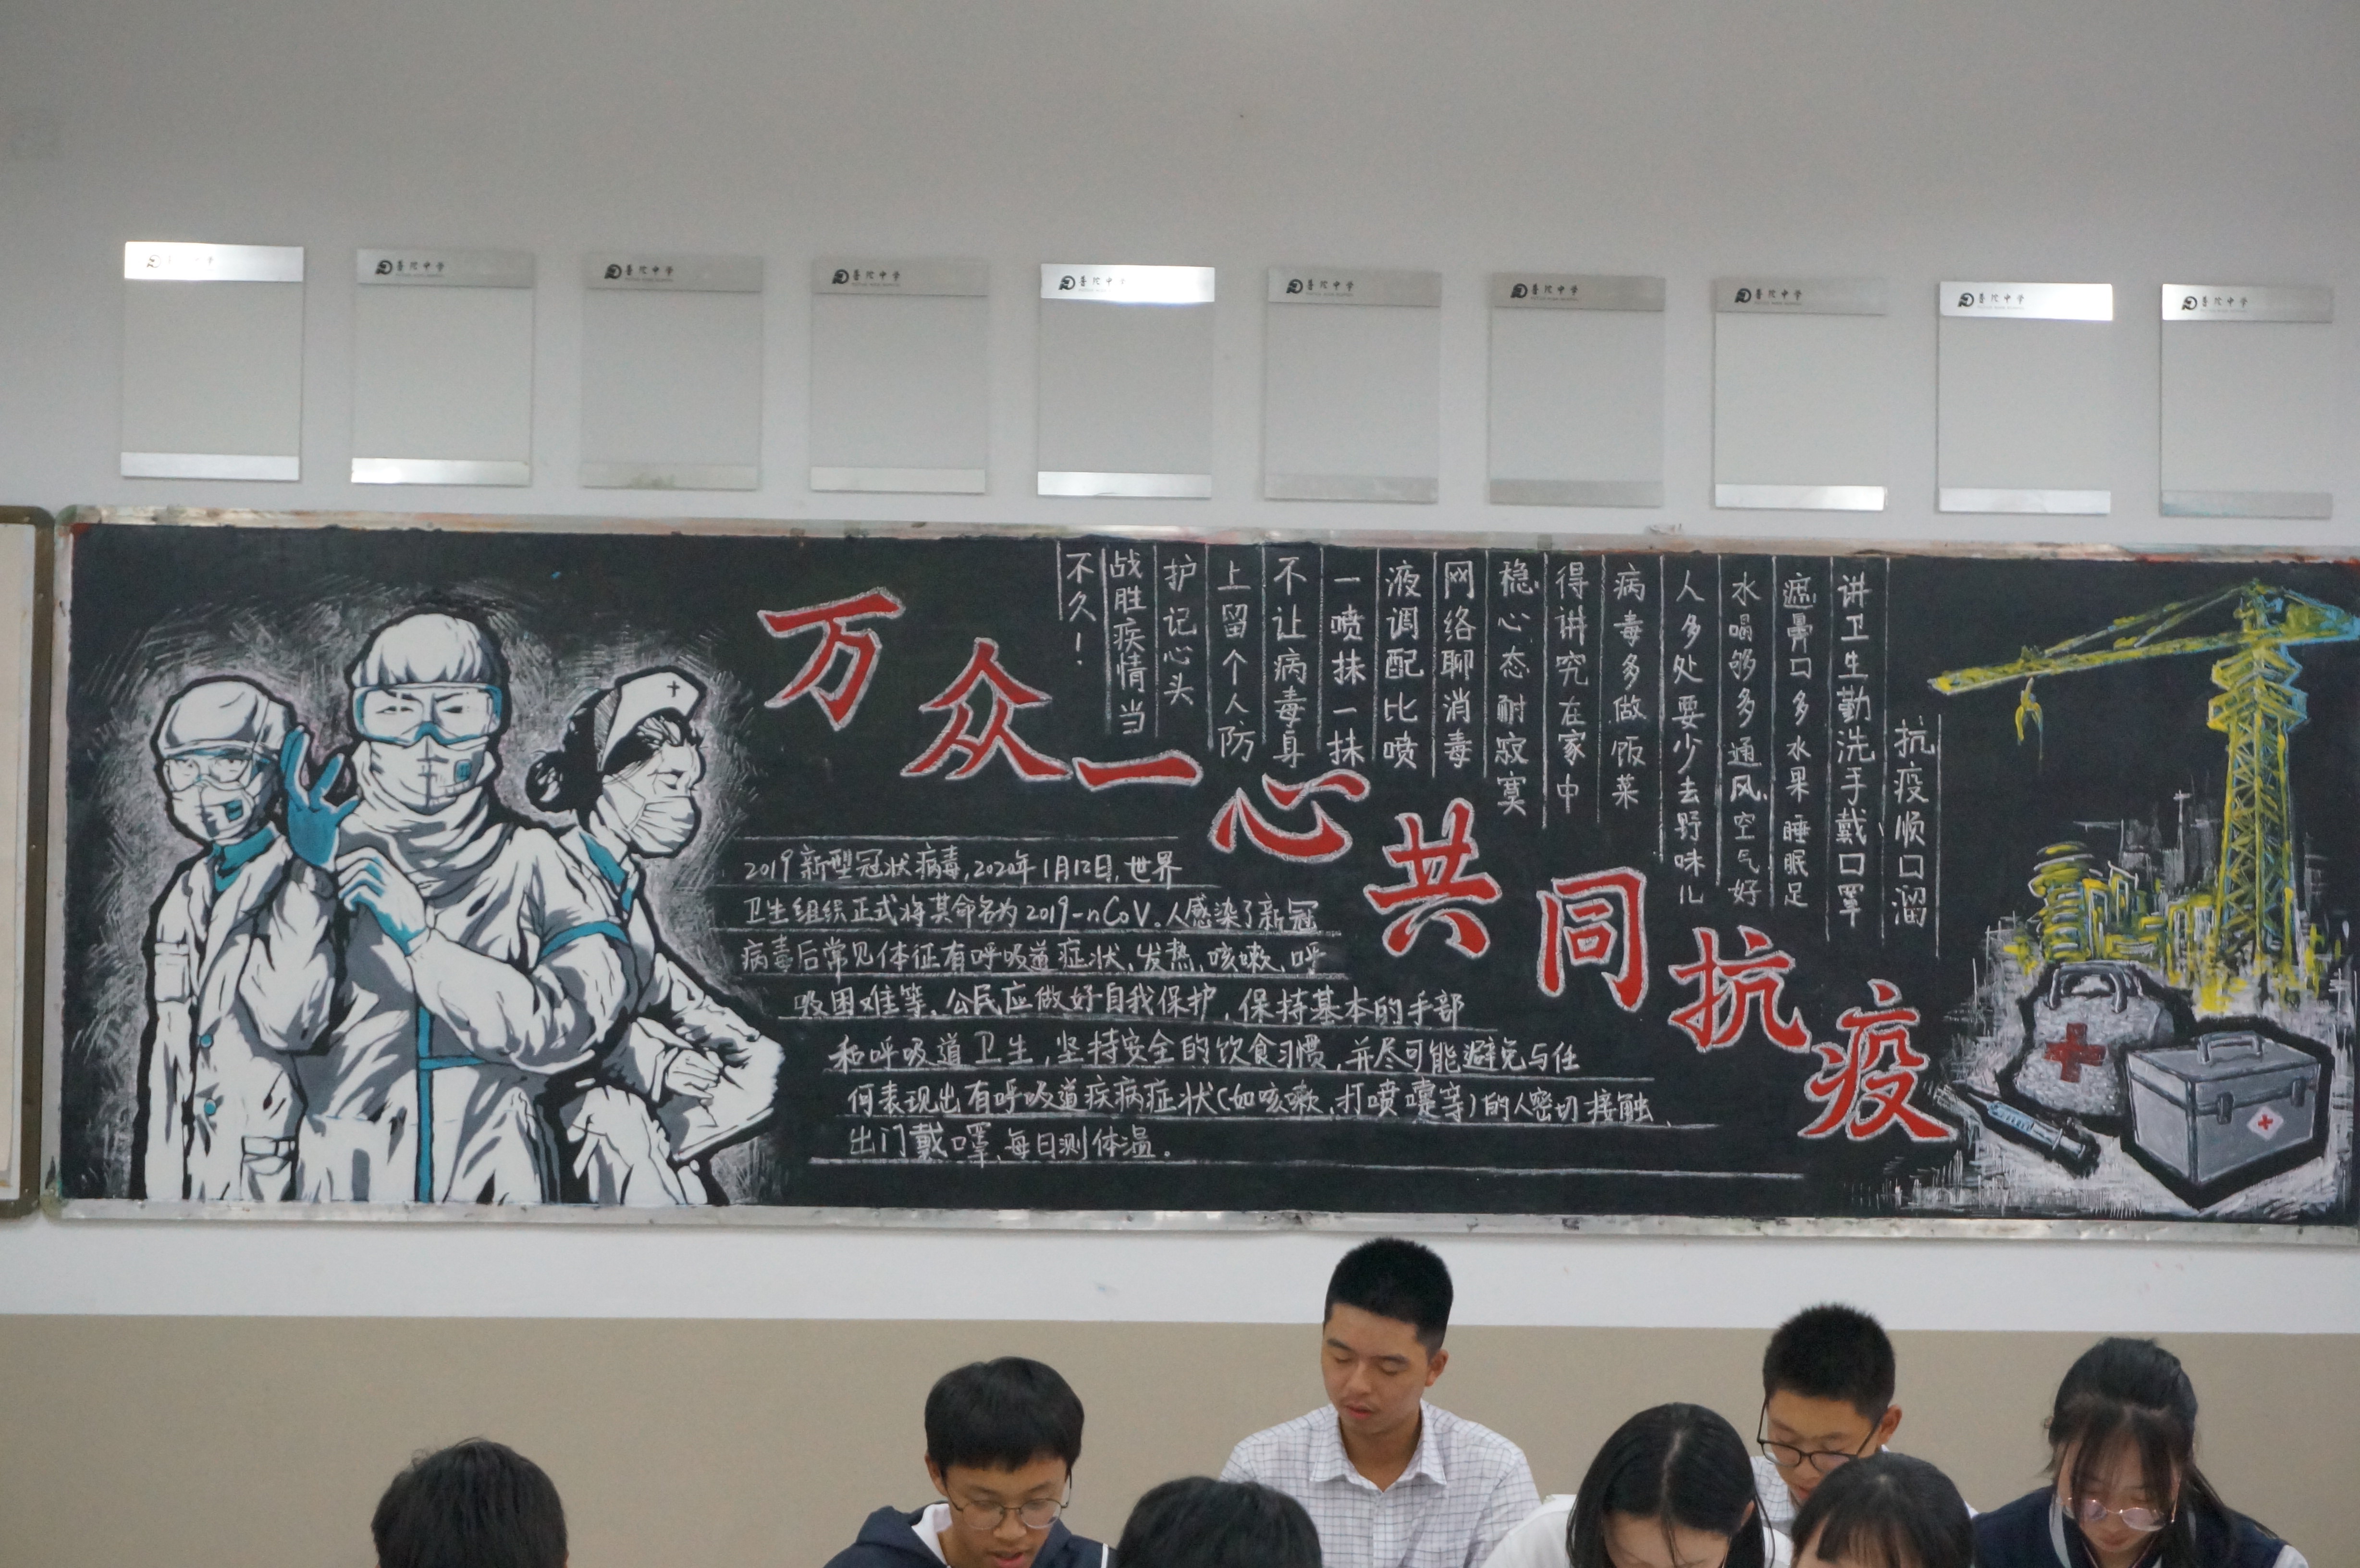 普陀中学
普陀中学
普陀中学
普陀中学
普陀中学
普陀中学
普陀中学
普陀中学
普陀中学
普陀中学
万众一心共同抗疫
抗疫顺口溜
讲卫生勤洗手戴口罩
遮鼻口多水果睡眠足
水喝够多通风空气好
人多处要少去野味儿
病毒多做饭菜
得讲究在家中
稳心态耐寂寞
网络聊消毒
液调配比喷
一喷抹一抹
不让病毒身
上留个人防
护记心头
战胜疾情当
不久!
2019新型冠状病毒,2020年1月12日,世界
卫生组织正式将其命名为2019-nCoV.人感染了新冠
病毒后常见体征有呼吸道症状、发热、咳嗽、呼
吸困难等。公民应做好自我保护,保持基本的手部
和呼吸道卫生,坚持安全的饮食习惯,并尽可能避免与任
何表现出有呼吸道疾病症状(如咳嗽,打喷嚏等)的人密切接触、
出门戴口罩,每日测体温。